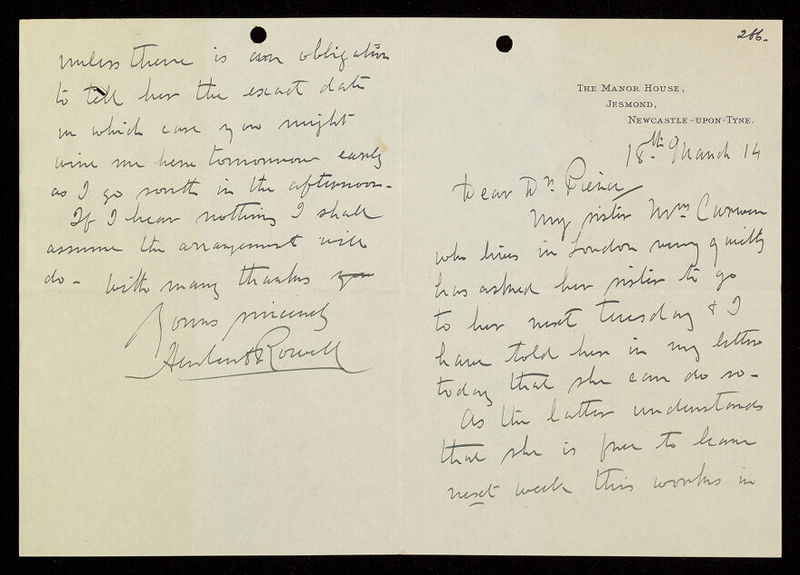 266.
THE MANOR HOUSE,
JESMOND,
NEWCASTLE-UPON-TYNE.
18th March 14
Dear Dr. Pierce
My sister Mrs Curwen
who lives in London very quietly
has asked her sister to go
to her next Tuesday & I
have told her in my letter
today that she can do so -
As the latter understands
that she is free to leave
next week this works in
unless there is an obligation
to tell her the exact date
in which case you might
wire me here tomorrow early
as I go south in the afternoon -
If I hear nothing I shall
assume the arrangement will
do - With many thanks
Yours sincerely
Herbert Rowell